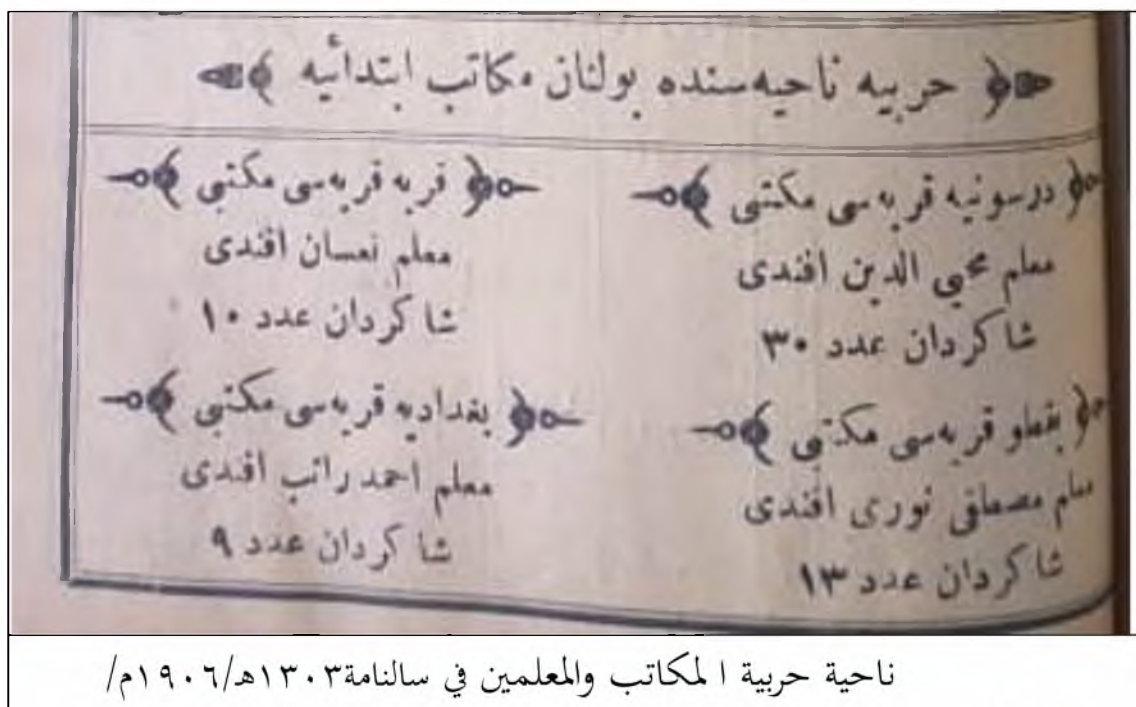 ﴿ حربيه ناحيه‌سنده بولنان مكاتب ابتدأئيه ﴾
﴿ درسونيه قريه‌سى مكتبى ﴾
معلم محيى الدين افندى
شاكردان عدد ٣٠
﴿ قريه‌سى مكتبى ﴾
معلم مصطفى نورى افندى
شاكردان عدد ١٣
﴿ قريه قريه‌سى مكتبى ﴾
معلم نعسان افندى
شاكردان عدد ١٠
﴿ بغداديه قريه‌سى مكتبى ﴾
معلم احمد راتب افندى
شاكردان عدد ٩
ناحية حربية ا لمكاتب والمعلمين في سالنامة١٣٠٣هـ/١٩٠٦م/